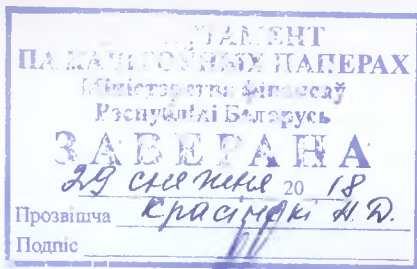 ДЭПАРТАМЕНТ
ПА КАШТОЎНЫХ ПАПЕРАХ
Міністэрства фінансаў
Рэспублікі Беларусь
ЗАВЕРАНА
29 снежня 20 18
Прозвішча Красінскі Н.D.
Подпіс